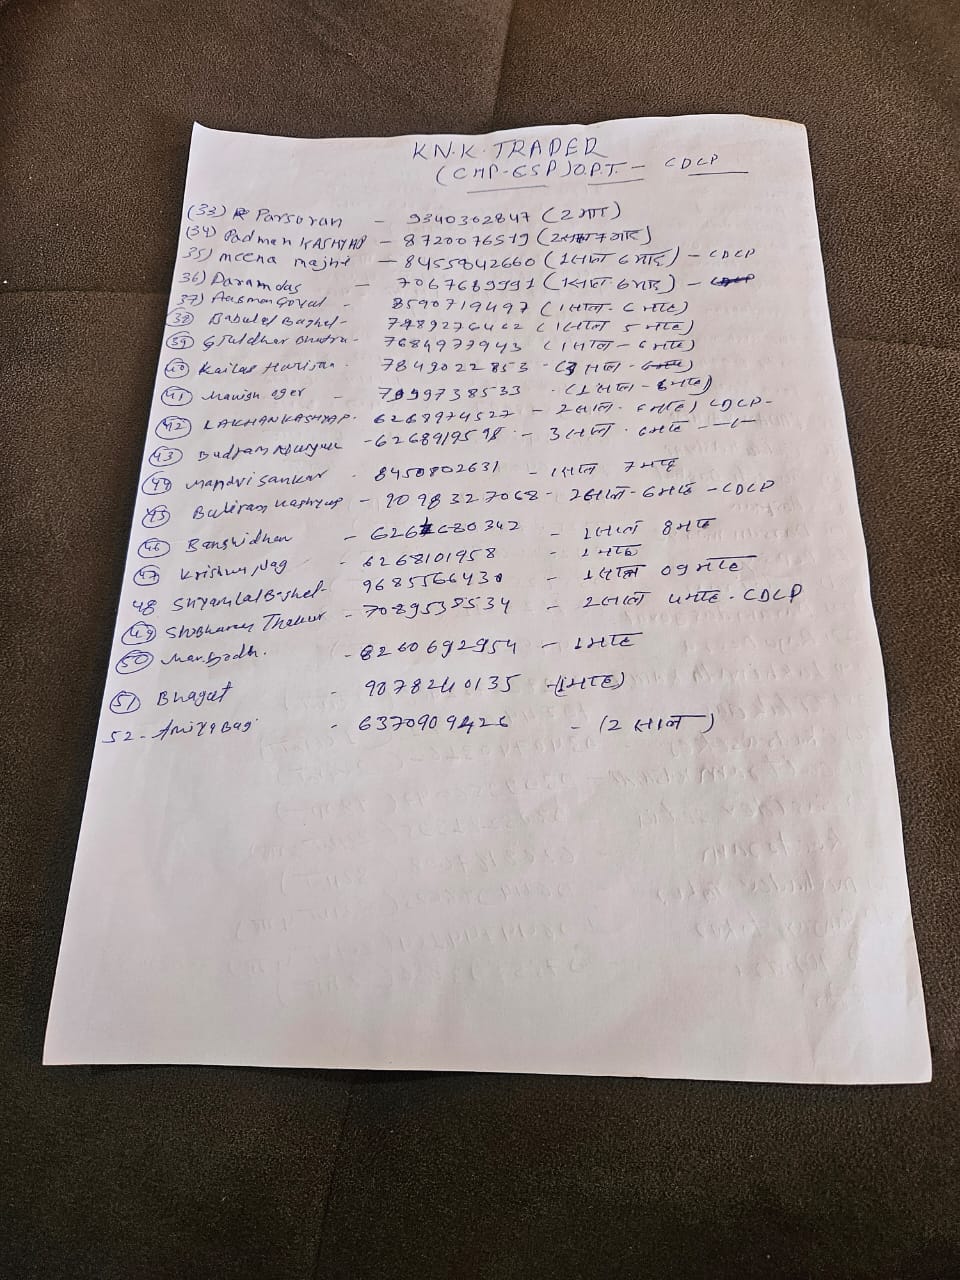 KN.K. TRADER
(CMP-GSP) O.P.T. - CDCP
(33) Parsuram - 9340302847 (2 माह)
(34) Padman KASHYAP - 8720076519 (2साल 7 माह)
35) meena majhi - 8455842660 (1साल 6 माह) - CDCP
36) Daramdas - 7067689991 (1साल 6माह) -
37) Aasman Goyal - 8590719497 (1साल - 6 माह)
(38) Babulal Baghel - 7489276462 (1साल 5 माह)
(39) Giridhar Bhatra - 7684977943 (1साल - 6माह)
(40) Kailas Harijan - 7849022853 - (3 साल -
(41) Manish ager - 7999738533 (1साल - 6माह)
(42) LAKHAN KASHYAP - 6268974527 - 2साल - 6माह) CDCP -
(43) Budram - 6268919598 - 3साल - 6माह -
(44) Mandvi Sankar - 8450802631 - 1साल 7माह
(45) Baliram Kashyap - 9098327068 - 2साल - 6माह - CDCP
(46) Banshidhar - 626 680342 - 1साल 8माह
(47) Krishna Nag - 6268101958 - 1 माह
48 Shyamlal Baghel - 9685566430 - 1साल 09माह
(49) Shobharam Thakur - 7089538534 - 2साल 4माह - CDCP
(50) - 8260692954 - 1माह
(51) Bhagat - 9078240135 - (1माह)
52 - Amiya Bag - 6370909426 - (2 साल)